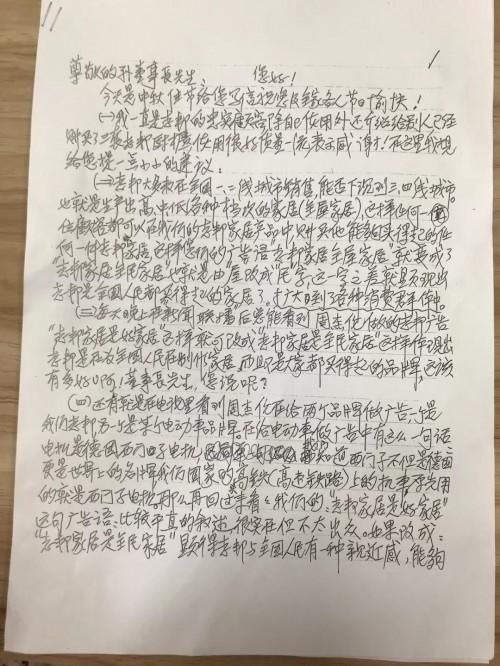 1
尊敬的孙董事长先生： 您好！
今天是中秋佳节给您写信祝您及全家各人节日愉快！
(一)我一直是志邦的忠实顾客除自己使用外还介绍给别人已经
购买了三套志邦橱柜使用很好质量一流表示感谢！在这里我想
给您提一点小小的建议：
(二)志邦大多数在全国一、二线城市销售，能否下沉到三、四线城市。
也就是生产出高、中、低各种档次的家居(全屋家居)，这样任何一
住户都可以在我们的志邦家居产品中对
何一付志邦家居，这样您们的广告语"志邦家居全屋家居"就变成了
"志邦家居全民家居"也就是由屋改成"民"字，这一字之差就显现出
志邦是全国人民都买得起的家居了，扩大到了各种消费者群体中。
(三)每天晚上看新闻联播后总能看到周杰伦做的志邦广告
"志邦家居是好家居"这样就可改成"志邦家居是全民家居"这样体现出
志邦是在为全国人民在制作家居，而且是大家都买得起的品牌，应该
有多好啊！董事长先生，您说呢？
(四)还有就是在电视里看到周杰伦在给两个品牌做广告一个是
我们志邦另一个是某个电动车品牌。在给电动车做广告中有这么一句话
电机是德国西门子电机， 知道西门子不但是德国
更是世界上的名牌我们国家的高铁(高速铁路)上的
的就是西门子电机。那么再回过来看《我们的："志邦家居是好家居"
这句广告语：比较平直的叙述，很实在但不太出众。如果改成：
"志邦家居是全民家居"显得志邦与全国人民有一种亲近感，能够